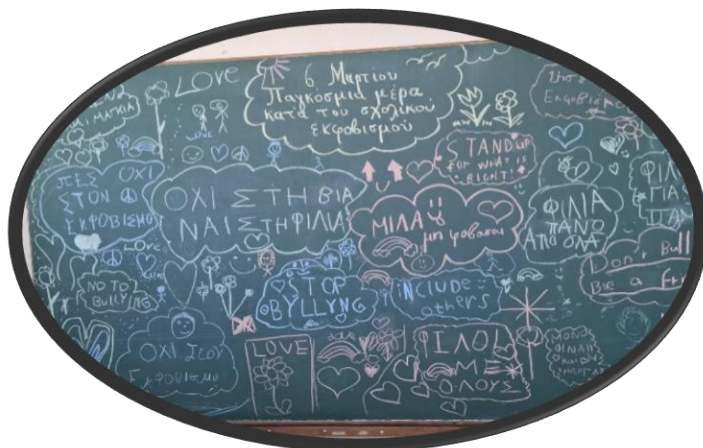 LOVE
6 Μαρτίου
Παγκόσμια μέρα
κατά του σχολικού
εκφοβισμού
STAND up
FOR WHAT IS
RIGHT!
ΠΕΣ ΟΧΙ
ΣΤΟΝ
ΕΚΦΟΒΙΣΜΟ
ΟΧΙ ΣΤΗ ΒΙΑ
ΝΑΙ ΣΤΗ ΦΙΛΙΑ
ΜΙΛΑ
μη φοβασαι
ΦΙΛΙΑ
ΠΑΝΩ
ΑΠΟ ΟΛΑ
Love
NO TO
BULLYING
STOP
BYLLYNG
INCLUDE
others
Don't Bull
Be a
ΟΧΙ ΣΤΟΥ
Εκφοβισμο
LOVE
ΦΙΛΟΙ
ΜΕ
ΟΛΟΥΣ